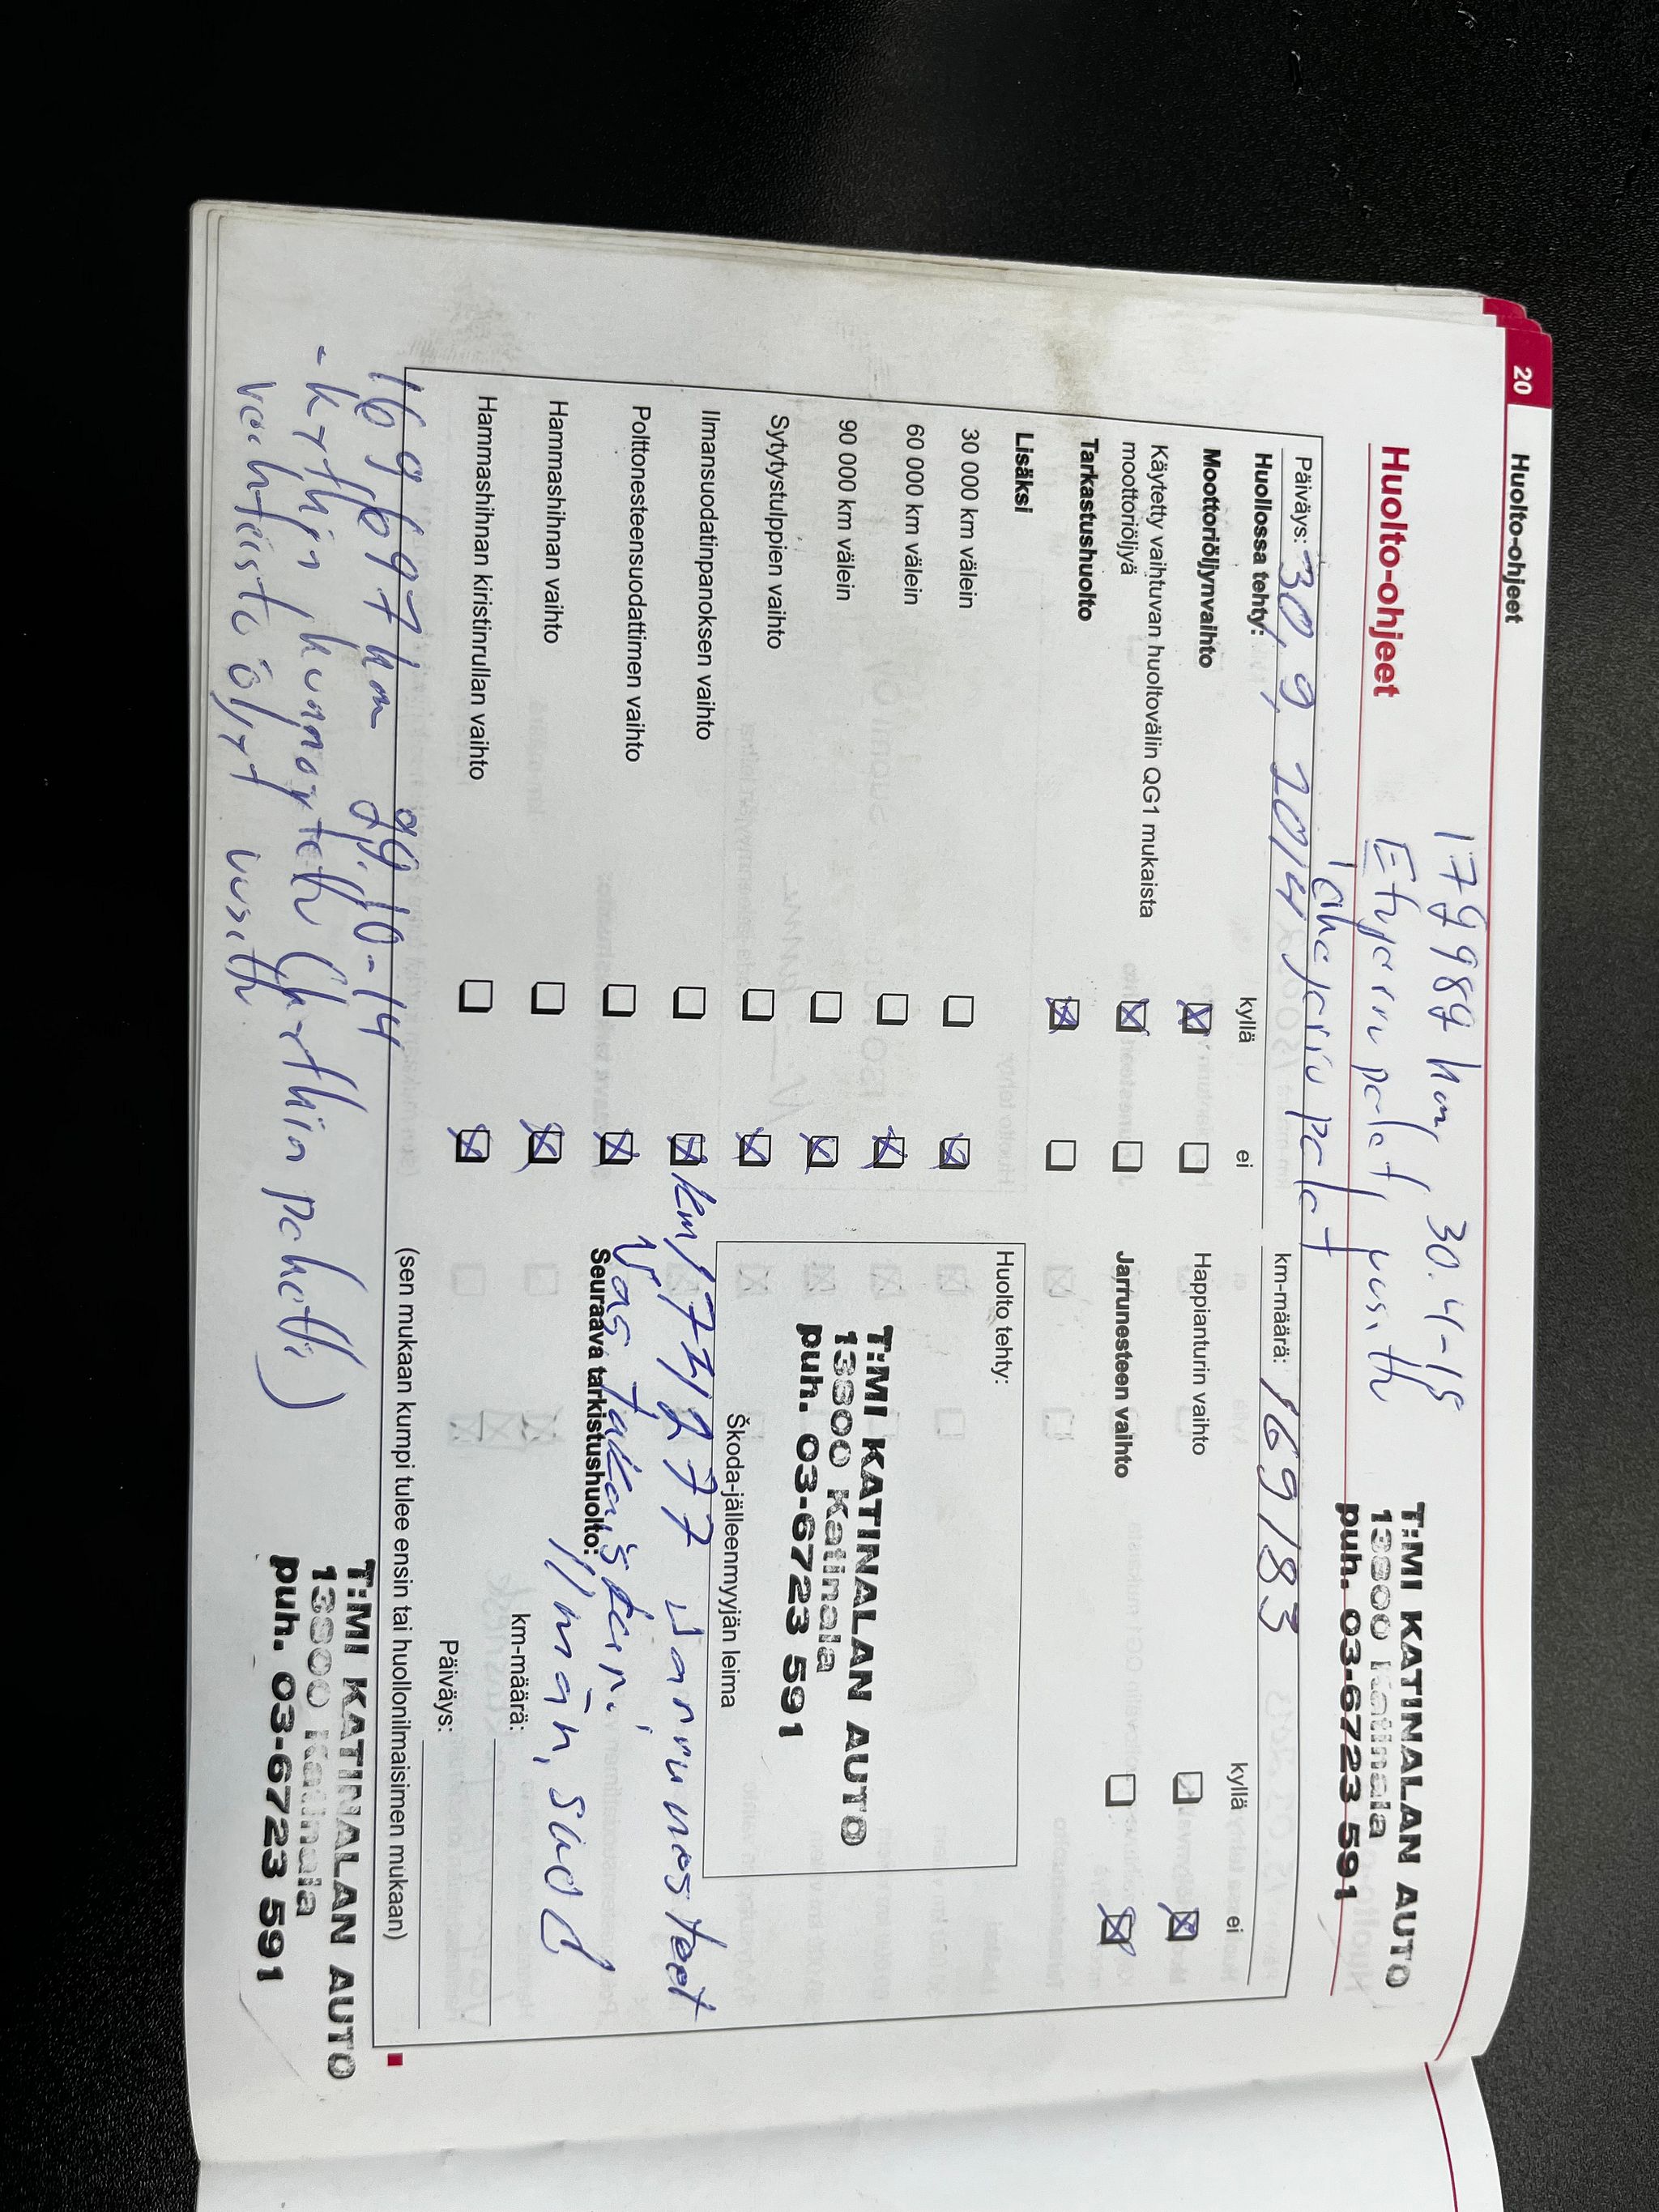 20 Huolto-ohjeet
179989 km 30.4-15
Huolto-ohjeet Etujarru palat uusittu
Takajarru palat
T:MI KATINALAN AUTO
13800 Katinala
puh. 03-6723 591
Päiväys: 30.9.2014 km-määrä: 169183
Huollossa tehty: kyllä ei kyllä ei
Moottoriöljynvaihto ☒ ☐ Happianturin vaihto ☐ ☒
Käytetty vaihtuvan huoltovälin QG1 mukaista
moottoriöljyä ☒ ☐ Jarrunesteen vaihto ☐ ☒
Tarkastushuolto ☒ ☐
Lisäksi
30 000 km välein ☐ ☒
60 000 km välein ☐ ☒
90 000 km välein ☐ ☒
Sytytystulppien vaihto ☐ ☒
Ilmansuodatinpanoksen vaihto ☐ ☒
Polttonesteensuodattimen vaihto ☐ ☒
Hammashihnan vaihto ☐ ☒
Hammashihnan kiristinrullan vaihto ☐ ☒
Huolto tehty:
T:MI KATINALAN AUTO
13800 Katinala
puh. 03-6723 591
Škoda-jälleenmyyjän leima
km/174277 Jarrunesteet
Vas takajousi
Seuraava tarkistushuolto:
Ilman, suod
km-määrä:
Päiväys:
(sen mukaan kumpi tulee ensin tai huollonilmaisimen mukaan)
169697 km 29.10-14
- Kytkin kunnostettu (kytkin paketti)
vaihteisto öljyt uusittu
T:MI KATINALAN AUTO
13800 Katinala
puh. 03-6723 591